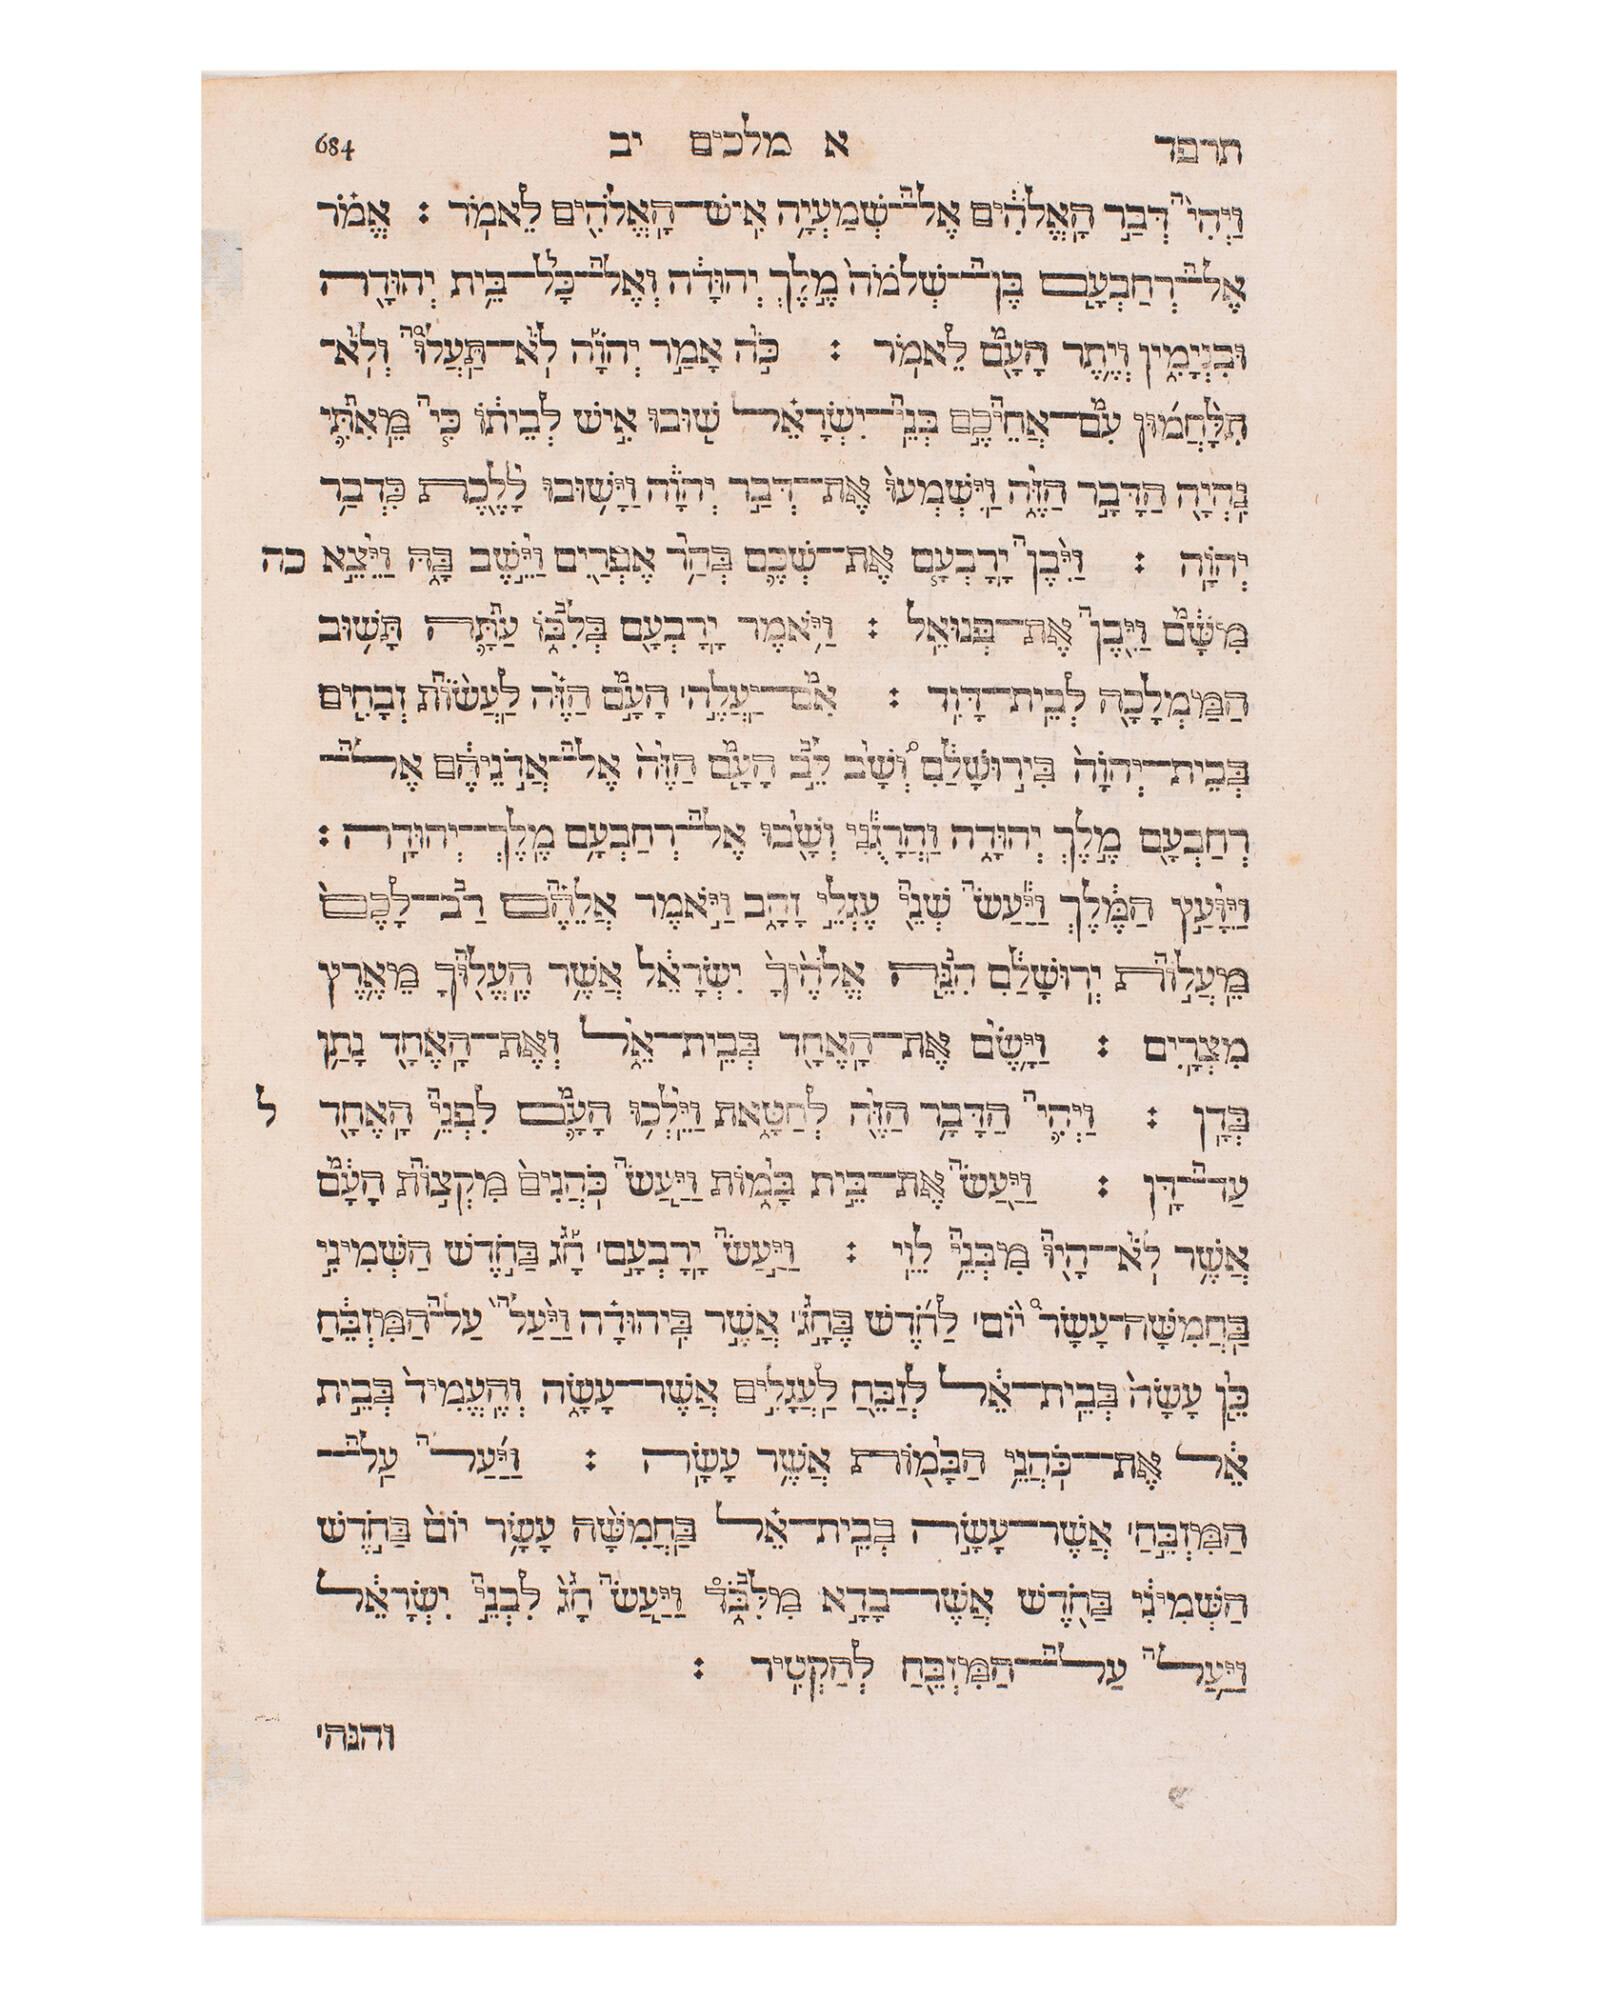 תרפד א מלכים יב 684
וַיְהִי דְּבַר הָאֱלֹהִים אֶל־שְׁמַעְיָה אִישׁ־הָאֱלֹהִים לֵאמֹר : אֱמֹר
אֶל־רְחַבְעָם בֶּן־שְׁלֹמֹה מֶלֶךְ יְהוּדָה וְאֶל־כָּל־בֵּית יְהוּדָה
וּבִנְיָמִין וְיֶתֶר הָעָם לֵאמֹר : כֹּה אָמַר יְהוָה לֹא־תַעֲלוּ וְלֹא־
תִלָּחֲמוּן עִם־אֲחֵיכֶם בְּנֵי־יִשְׂרָאֵל שׁוּבוּ אִישׁ לְבֵיתוֹ כִּי מֵאִתִּי
נִהְיָה הַדָּבָר הַזֶּה וַיִּשְׁמְעוּ אֶת־דְּבַר יְהוָה וַיָּשׁוּבוּ לָלֶכֶת כִּדְבַר
יְהוָה : וַיִּבֶן יָרָבְעָם אֶת־שְׁכֶם בְּהַר אֶפְרַיִם וַיֵּשֶׁב בָּהּ וַיֵּצֵא כה
מִשָּׁם וַיִּבֶן אֶת־פְּנוּאֵל : וַיֹּאמֶר יָרָבְעָם בְּלִבּוֹ עַתָּה תָּשׁוּב
הַמַּמְלָכָה לְבֵית־דָּוִד : אִם־יַעֲלֶה הָעָם הַזֶּה לַעֲשׂוֹת זְבָחִים
בְּבֵית־יְהוָה בִּירוּשָׁלַםִ וְשָׁב לֵב הָעָם הַזֶּה אֶל־אֲדֹנֵיהֶם אֶל־
רְחַבְעָם מֶלֶךְ יְהוּדָה וַהֲרָגֻנִי וְשָׁבוּ אֶל־רְחַבְעָם מֶלֶךְ־יְהוּדָה :
וַיִּוָּעַץ הַמֶּלֶךְ וַיַּעַשׂ שְׁנֵי עֶגְלֵי זָהָב וַיֹּאמֶר אֲלֵהֶם רַב־לָכֶם
מֵעֲלוֹת יְרוּשָׁלַםִ הִנֵּה אֱלֹהֶיךָ יִשְׂרָאֵל אֲשֶׁר הֶעֱלוּךָ מֵאֶרֶץ
מִצְרָיִם : וַיָּשֶׂם אֶת־הָאֶחָד בְּבֵית־אֵל וְאֶת־הָאֶחָד נָתַן
בְּדָן : וַיְהִי הַדָּבָר הַזֶּה לְחַטָּאת וַיֵּלְכוּ הָעָם לִפְנֵי הָאֶחָד ל
עַד־דָּן : וַיַּעַשׂ אֶת־בֵּית בָּמוֹת וַיַּעַשׂ כֹּהֲנִים מִקְצוֹת הָעָם
אֲשֶׁר לֹא־הָיוּ מִבְּנֵי לֵוִי : וַיַּעַשׂ יָרָבְעָם חָג בַּחֹדֶשׁ הַשְּׁמִינִי
בַּחֲמִשָּׁה־עָשָׂר יוֹם לַחֹדֶשׁ כֶּחָג אֲשֶׁר בִּיהוּדָה וַיַּעַל עַל־הַמִּזְבֵּחַ
כֵּן עָשָׂה בְּבֵית־אֵל לְזַבֵּחַ לָעֲגָלִים אֲשֶׁר־עָשָׂה וְהֶעֱמִיד בְּבֵית
אֵל אֶת־כֹּהֲנֵי הַבָּמוֹת אֲשֶׁר עָשָׂה : וַיַּעַל עַל־
הַמִּזְבֵּחַ אֲשֶׁר־עָשָׂה בְּבֵית־אֵל בַּחֲמִשָּׁה עָשָׂר יוֹם בַּחֹדֶשׁ
הַשְּׁמִינִי בַּחֹדֶשׁ אֲשֶׁר־בָּדָא מִלִּבֹּד וַיַּעַשׂ חָג לִבְנֵי יִשְׂרָאֵל
וַיַּעַל עַל־הַמִּזְבֵּחַ לְהַקְטִיר :
והנה